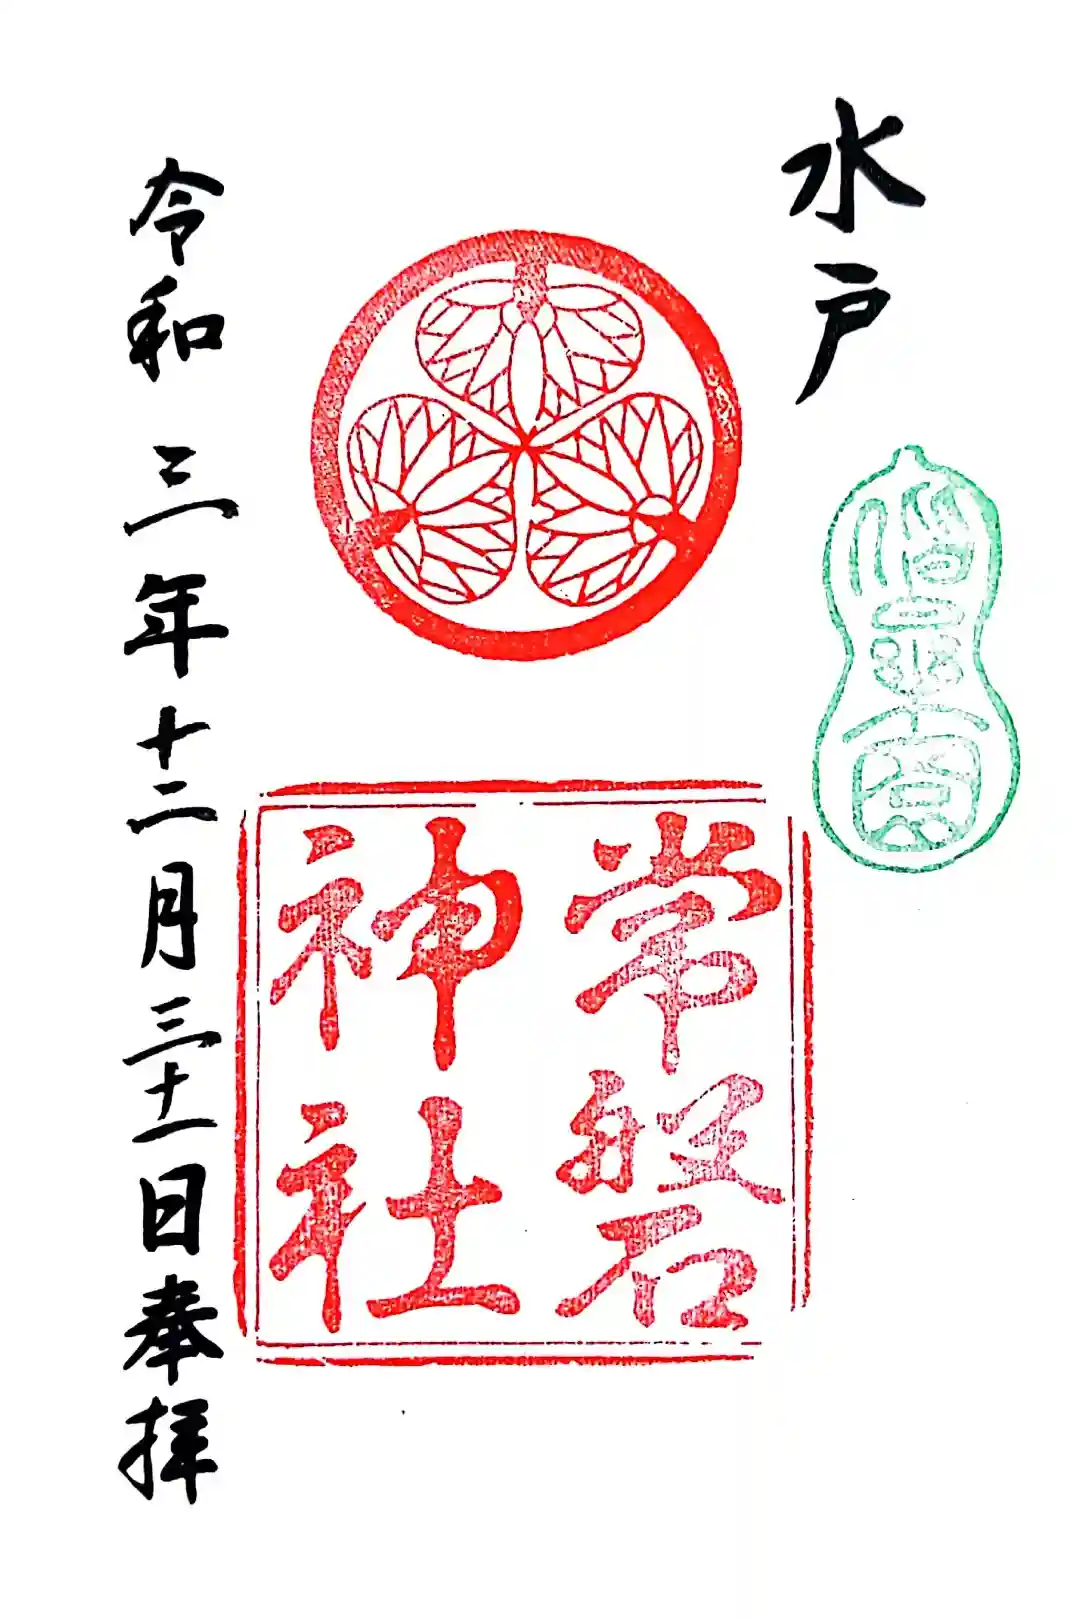 水戸
偕楽園
常磐
神社
令和三年十二月三十一日奉拝